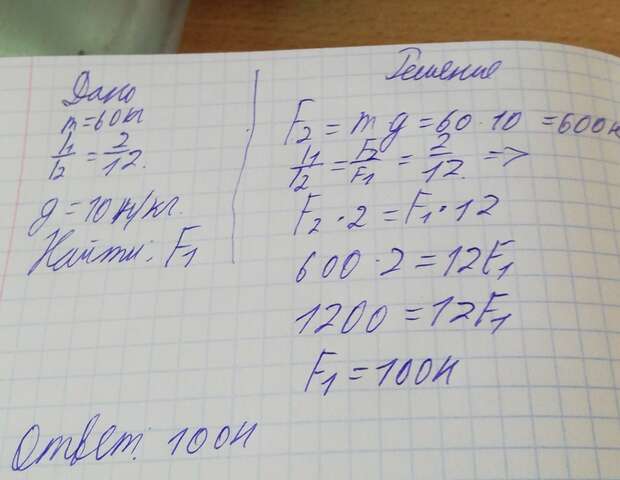 Дано
m = 60кг
l₁/l₂ = 2/12.
g = 10н/кг.
Найти: F₁
Решение
F₂ = m g = 60 · 10 = 600н
l₁/l₂ = F₂/F₁ = 2/12. =>
F₂ · 2 = F₁ · 12
600 · 2 = 12F₁
1200 = 12F₁
F₁ = 100н
Ответ: 100н